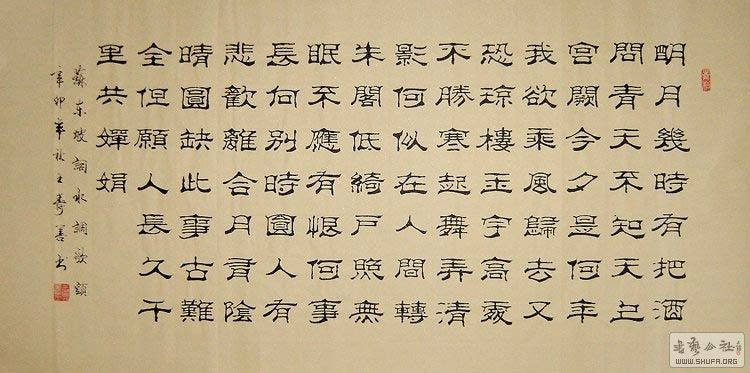 明月幾時有把酒
問青天不知天上
宮闕今夕是何年
我欲乘風歸去又
恐琼樓玉宇高處
不勝寒起舞弄清
影何似在人間轉
朱閣低綺戶照無
眠不應有恨何事
長何別時圓人有
悲歡離合月有陰
晴圓缺此事古難
全但願人長久千
里共嬋娟
蘇东坡詞水調歌頭
辛卯年秋王壽善书
WWW.SHUFA.ORG